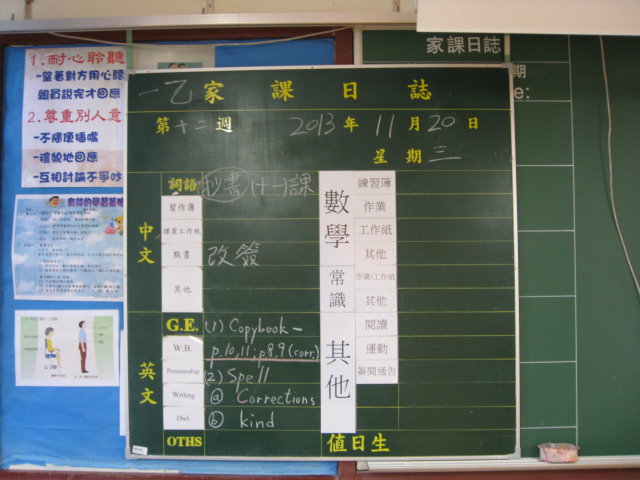 1. 耐心聆聽
-望著對方用心聆
組員說完才回應
2. 尊重別人意
-不隨便插嘴
-禮貌地回應
-互相討論不爭吵
有效的學習策略
一乙家課日誌
第十二週 2013年11月20日
星期三
家課日誌
期
e:
中文
詞語 抄書(十一)課
習作簿
課業工作紙
默書 改簽
其他
英文
G.E. (1) Copybook -
W.B. p.10,11; p8,9(corr.)
Penmanship (2) Spell
Writing ⓐ Corrections
Dict. ⓑ kind
OTHS
數學
練習簿
作業
工作紙
其他
常識
作業/工作紙
其他
其他
閱讀
運動
簽閱通告
值日生